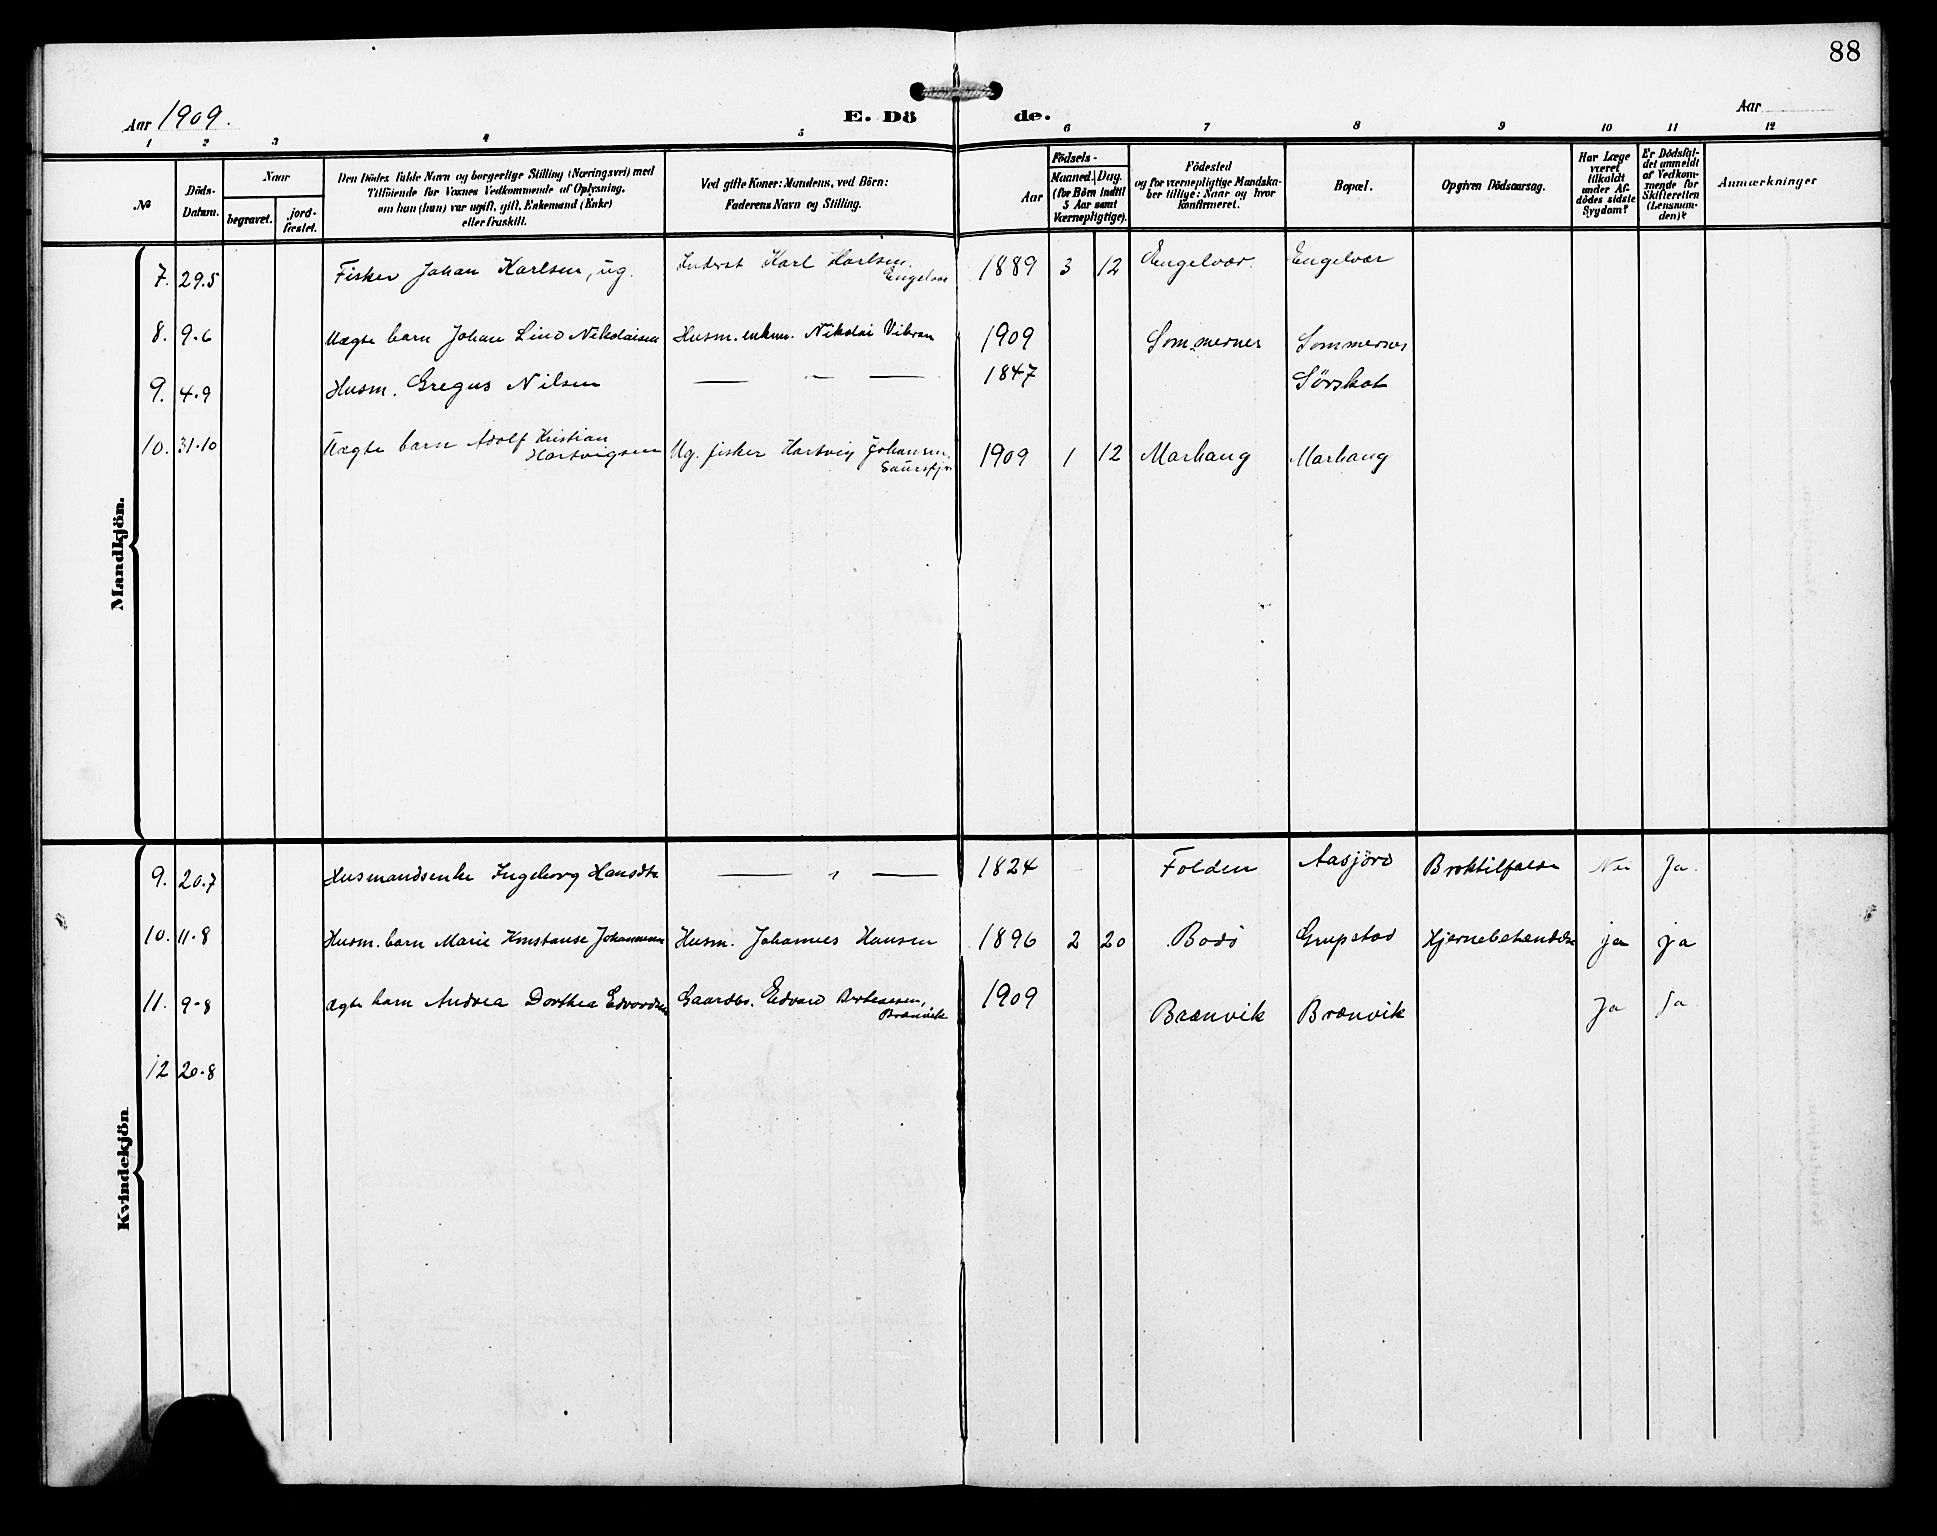 88
Aar 1909.
E. Dö de.
Aar
1 2 3 4 5 6 7 8 9 10 11 12
№
Döds-
Datum.
Naar
begravet.
jord-
fæstet.
Den Dödes fulde Navn og borgerlige Stilling (Næringsvei) med
Tilföiende for Voxnes Vedkommende af Oplysning,
om han (hun) var ugift, gift, Enkemand (Enke)
eller fraskilt.
Ved gifte Koner: Mandens, ved Börn:
Faderens Navn og Stilling.
Födsels-
Aar
Maaned. Dag.
(for Börn indtil
5 Aar samt
Værnepligtige).
Födested
og for værnepligtige Mandska-
ber tillige: Naar og hvor
konfirmeret.
Bopæl.
Opgiven Dödsaarsag.
Har Læge
været
tilkaldt
under Af-
dödes sidste
Sygdom?
Er Dödsfal-
det anmeldt
af Vedkom-
mende for
Skifteretten
(Lensman-
den)?
Anmærkninger
Mandkjön.
7. 29.5 Fisker Johan Karlsen, ug. Inderst Karl Karlsen, 1889 3 12 Engelvær. Engelvær
Engelvær
8. 9.6 Uægte barn Johan Lind Nikolaisen Husm. enkem. Nikolai Vibran 1909 Sommernes Sommernes
9. 4.9 Husm. Gregus Nilsen — " — 1847 Sørskot
10. 31.10 Uægte barn Adolf Kristian
Hartvigsen Ug. fisker Hartvig Johansen, 1909 1 12 Marhaug Marhaug
Kvindekjön.
9. 20.7 Husmandsenke Ingeborg Hansdtr — " — 1824 Folden Aasjord Broktilfælde Nei Ja.
10. 11.8 Husm. barn Marie Konstanse Johannesen Husm. Johannes Hansen 1896 2 20 Bodö Grupstad Hjernebetændelse ja ja
11. 9.8 Ægte barn Andrea Dorthea Edvardsen Gaardbr. Edvard Berteassen, 1909 Brænvik Brænvik Ja Ja
Brænvik
12 20.8